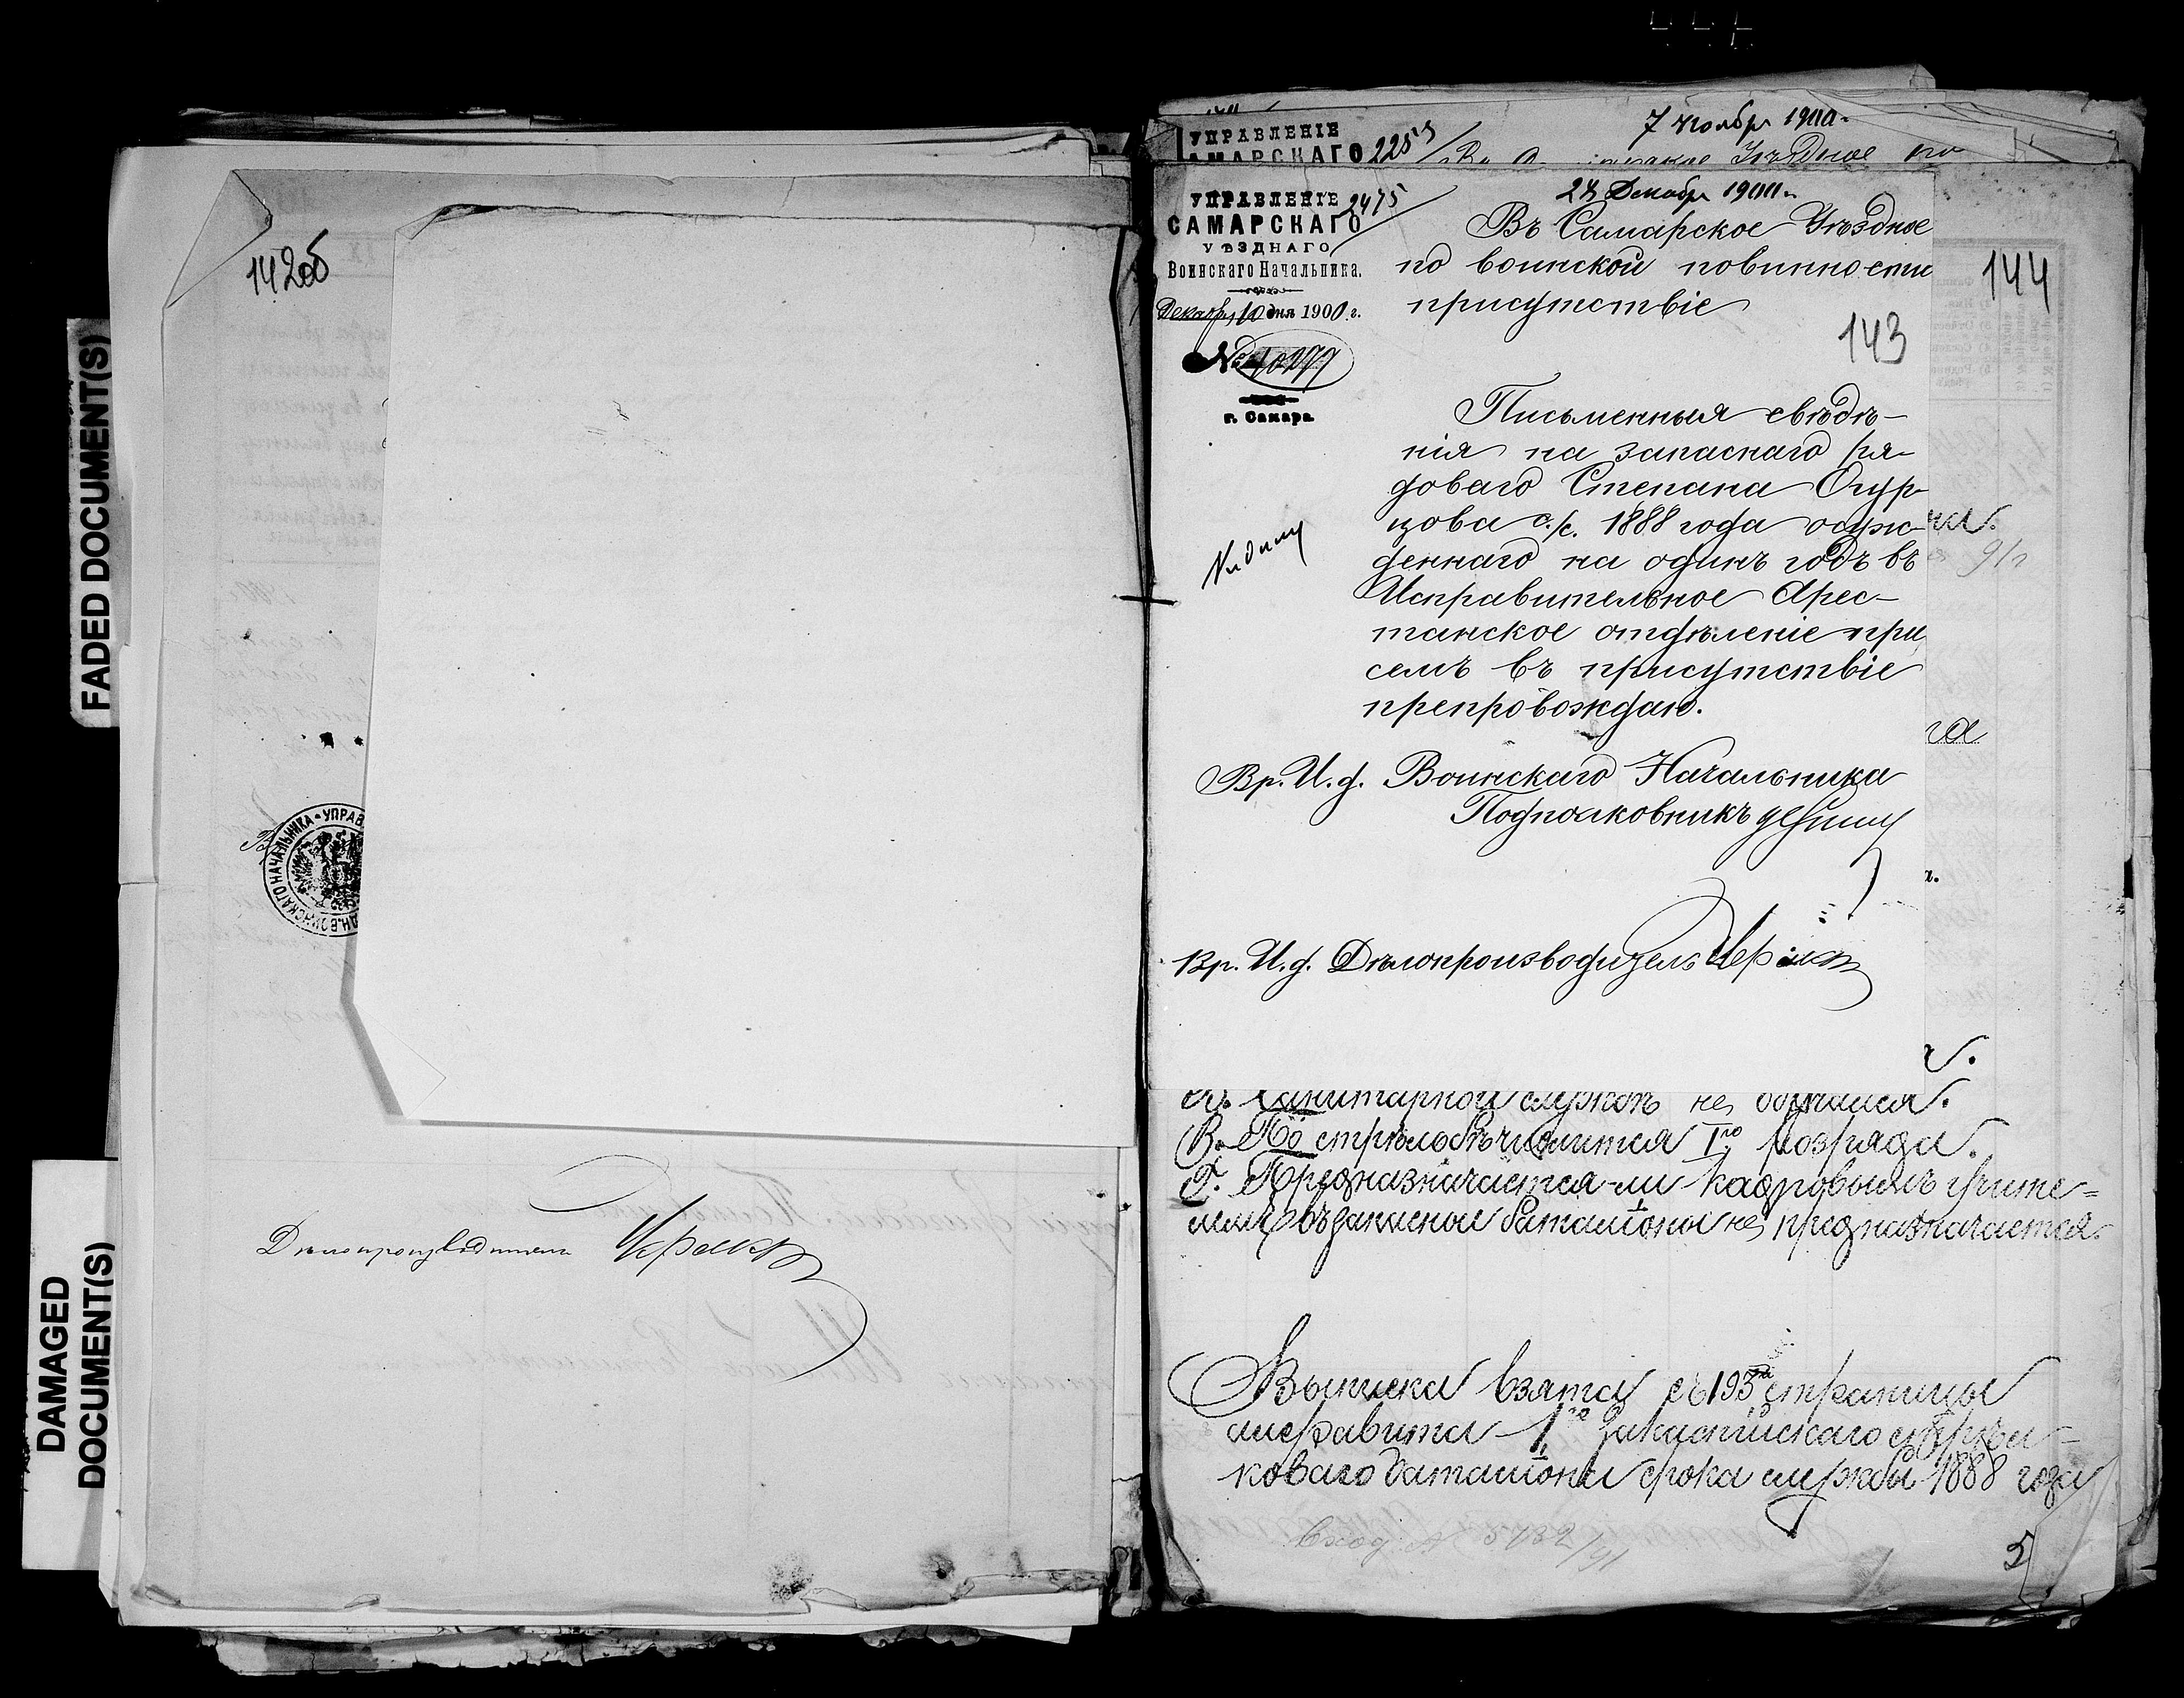 FADED DOCUMENT(S)
DAMAGED DOCUMENT(S)
142об
НАЧАЛЬНИКА УПРАВ
ВОИНСКАГО
Дѣлопроизводитель
7 Ноября 1900 г.
УПРАВЛЕНІЕ
САМАРСКАГО 2255
Уѣздное по
УПРАВЛЕНІЕ 2475
САМАРСКАГО
УѢЗДНАГО
Воинскаго Начальника.
Декабря 10 дня 1900 г.
№ 10277
г. Самара
Декабря 1900 г.
Въ Самарское Уѣздное
по воинской повинности
присутствіе
144
143
Письменныя свѣдѣ-
нія на запаснаго ря-
доваго Степана Огур-
цова с./с. 1888 года осуж-
деннаго на одинъ годъ въ
Исправительное Арес-
танское отдѣленіе при
семъ въ присутствіе
препровождаю.
Вр. И. д. Воинскаго Начальника
Подполковникъ
Вр. И. д. Дѣлопроизводитель
Санитарной службѣ не обучался.
В. По стрѣльбѣ числится I го розряда.
Г. Предназначается-ли кадровымъ учите-
лемъ въ запасные баталіоны не предназначается.
Выписка взята съ 193 страницы
алфавита 1го Закаспійскаго стрѣл-
коваго баталіона срока службы 1888 года
вход. № 5132/91